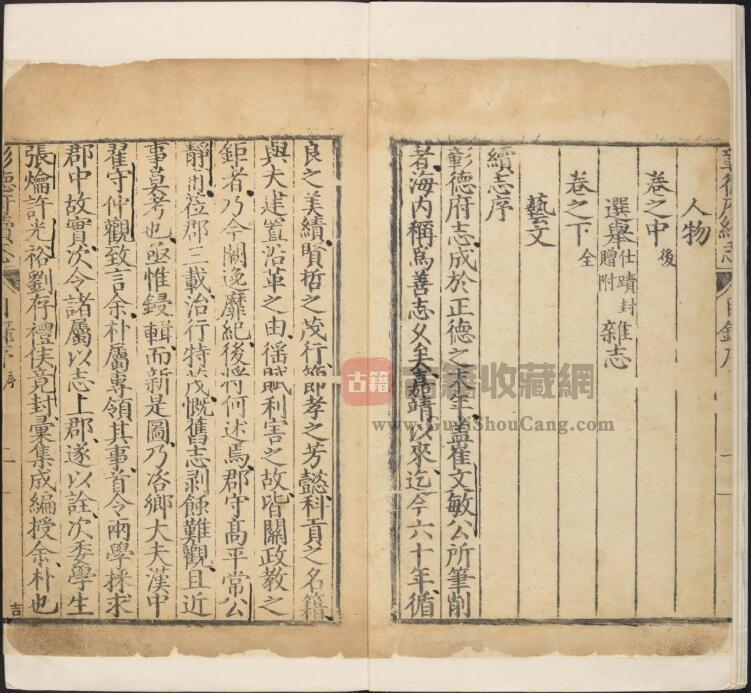 人物
卷之中 後
選舉 仕蹟封贈附 雜志
卷之下 全
藝文
續志序
彰德府志成於正德之末年蓋崔文敏公所筆削
者海内稱爲善志乆矣嘉靖以來迄今六十年循
良之美績賢哲之茂行節孝之芳懿科貢之名籍
與夫建置沿革之由徭賦利害之故皆關政教之
鉅者乃今闕逸靡紀後將何述焉郡守高平常公
靜甫蒞郡三載治行特茂慨舊志剥蝕難觀且近
事莫考也亟惟鋟輯而新是圖乃咨鄉大夫漢中
翟守仲觀致言余朴屬專領其事首令兩學採求
郡中故實次令諸屬以志上郡遂以詮次委學生
張爚許光裕劉存禮侯竟封彙集成編授余朴也
彰德府續志
目錄序
二
吉
古籍
收藏網
www.GuJiShouCang.com